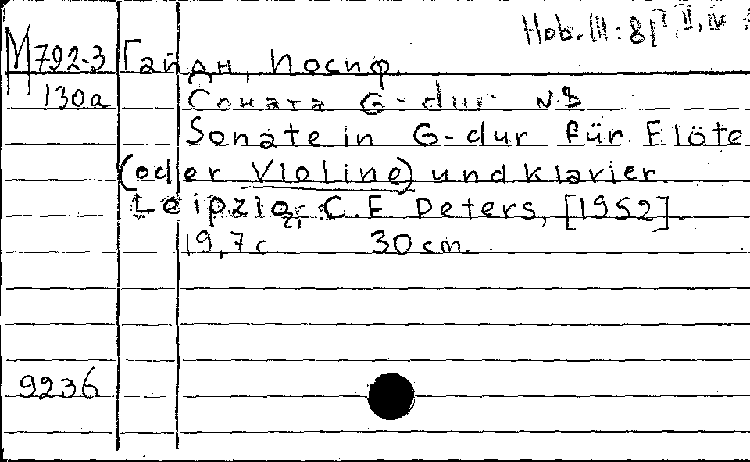 Hob. III: 81 I, II, IV
М792-3 Гайдн, Иосиф.
130а Соната G-dur № 8
Sonate in G-dur für Flöte
(oder Violine) und Klavier
Leipzig, C.F. Peters, [1952].
19,7 с 30 cm.
9236